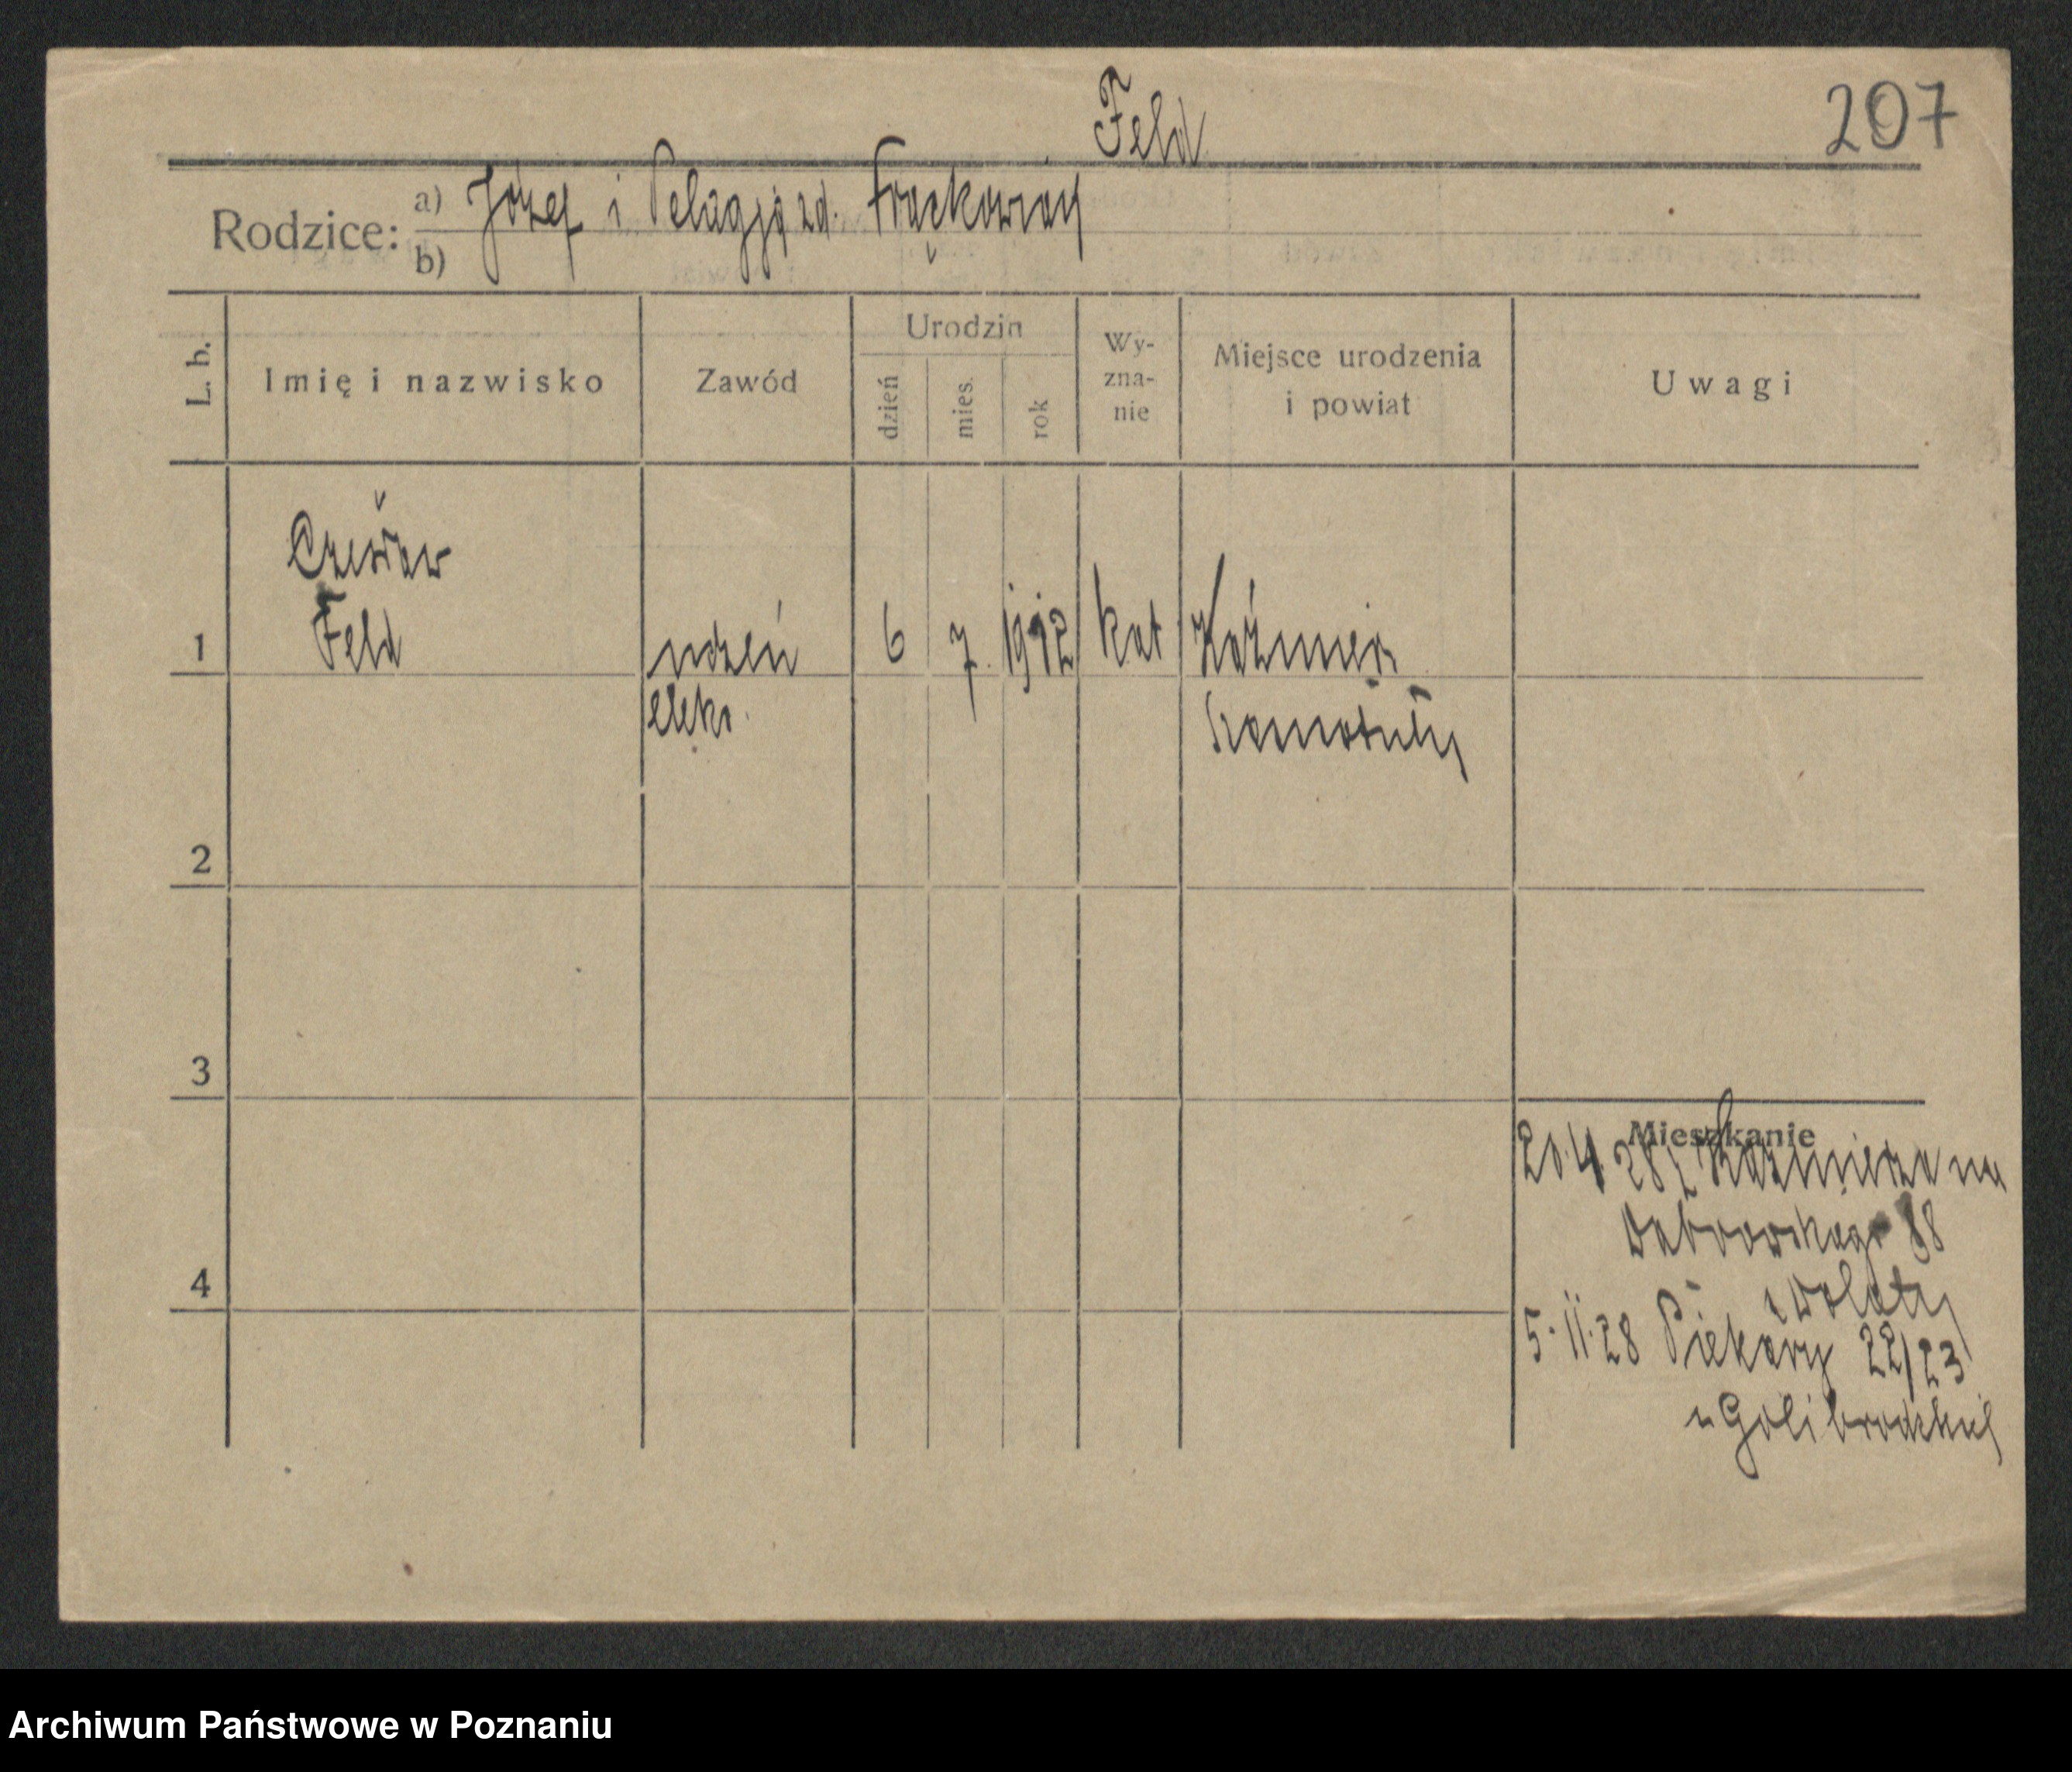 Feld
207
Rodzice: a) Józef i Pelagja zd. Frąckowiak
b)
L. b.
Imię i nazwisko
Zawód
Urodzin
dzień
mies.
rok
Wy-
zna-
nie
Miejsce urodzenia
i powiat
Uwagi
Czesław
Feld
1
uczeń
6
7.
1912
kat
Kaźmierz
elektr.
Szamotuły
2
3
Mieszkanie
20.4.28 z Kaźmierza na
Dąbrowskiego 88
4
5.11.28 Piekary 22/23
u Golibrodzkiej
Archiwum Państwowe w Poznaniu